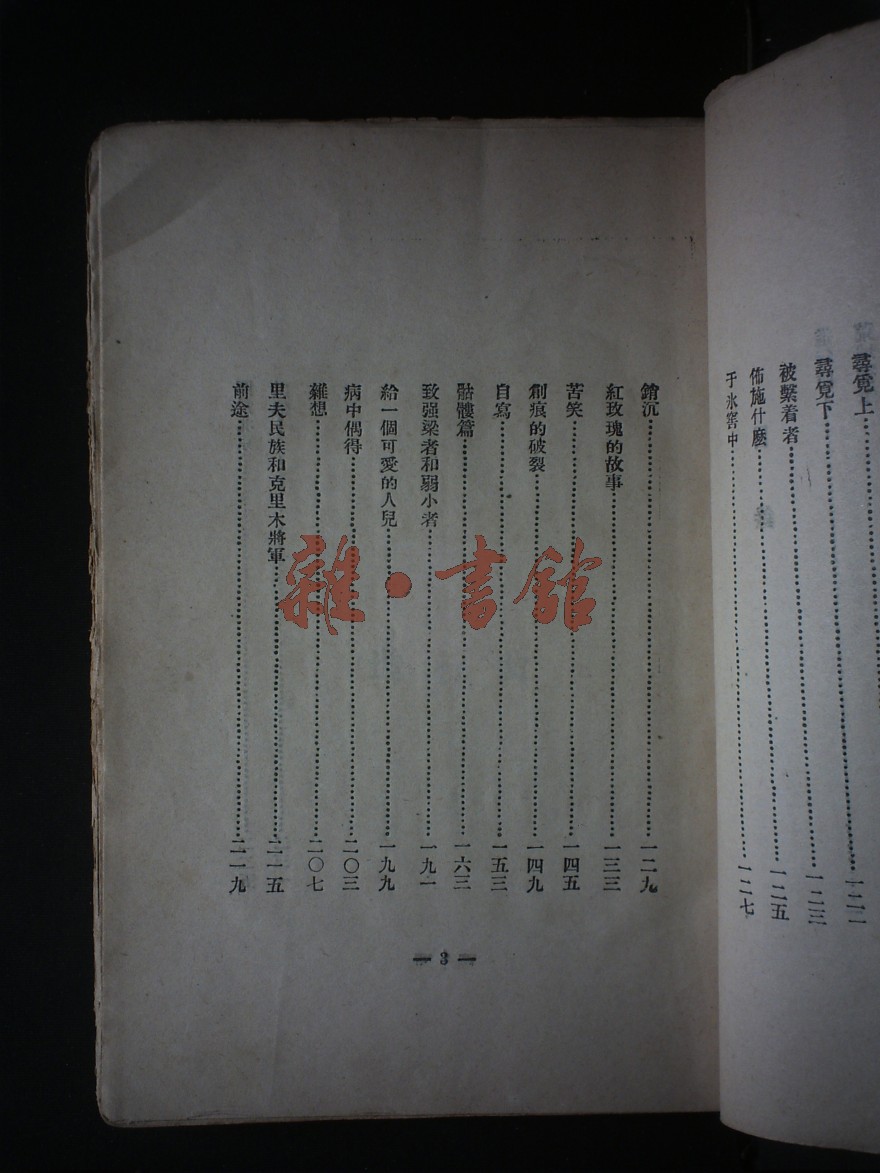 尋覓上……一二一
尋覓下……一二三
被繫着者……一二五
佈施什麽……一二七
于氷窖中
銷沉……一二九
紅玫瑰的故事……一三三
苦笑……一四五
創痕的破裂……一四九
自寫……一五三
骷髏篇……一六三
致强梁者和弱小者……一九一
給一個可愛的人兒……一九九
病中偶得……二〇三
雜想……二〇七
里夫民族和克里木將軍……二一五
前途……二一九
— 3 —
雜·書館